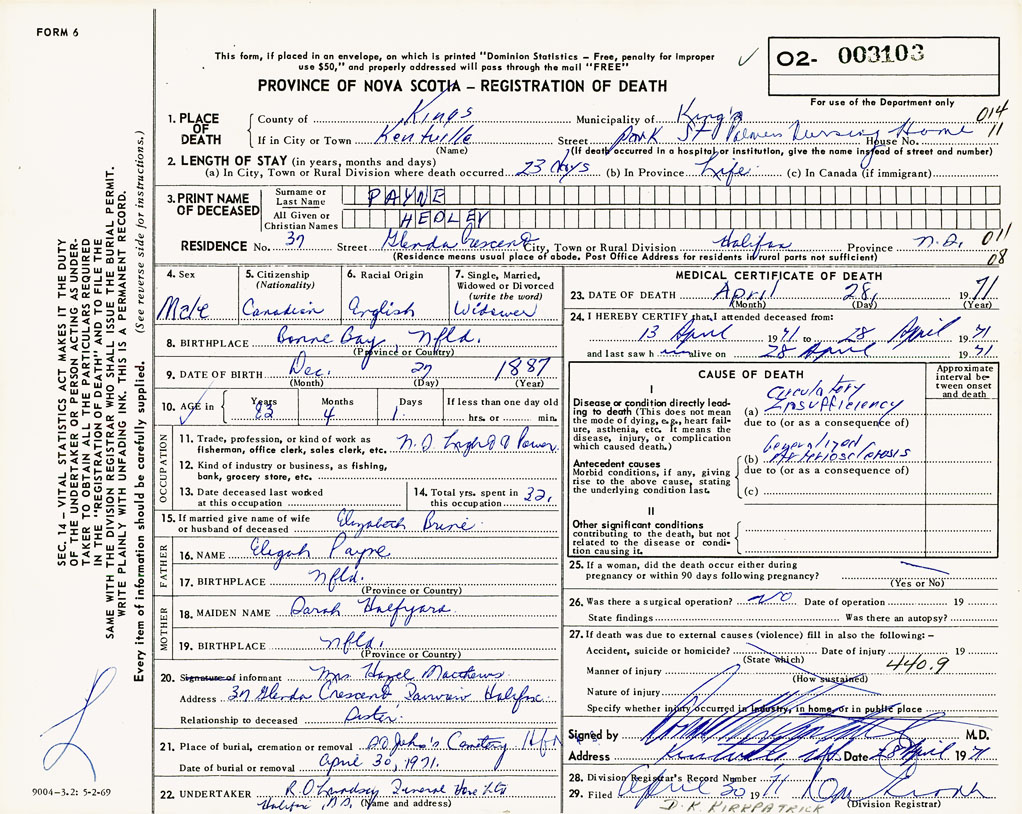 FORM 6
This form, if placed in an envelope, on which is printed "Dominion Statistics – Free, penalty for improper
use $50," and properly addressed will pass through the mail "FREE"
✓
O2- 003103
PROVINCE OF NOVA SCOTIA – REGISTRATION OF DEATH
For use of the Department only
014
11
1. PLACE OF DEATH
County of Kings Municipality of King's
If in City or Town Kentville Street Park St Palmers Nursing Home House No.
(Name) (If death occurred in a hospital or institution, give the name instead of street and number)
2. LENGTH OF STAY (in years, months and days)
(a) In City, Town or Rural Division where death occurred 23 days (b) In Province Life (c) In Canada (if immigrant)
3. PRINT NAME OF DECEASED
Surname or Last Name PAYNE
All Given or Christian Names HEDLEY
RESIDENCE No. 37 Street Glenda Crescent City, Town or Rural Division Halifax Province N.S. 011
(Residence means usual place of abode. Post Office Address for residents in rural parts not sufficient) 08
4. Sex Male
5. Citizenship (Nationality) Canadian
6. Racial Origin English
7. Single, Married, Widowed or Divorced (write the word) Widower
8. BIRTHPLACE Bonne Bay Nfld.
(Province or Country)
9. DATE OF BIRTH Dec. 27 1887
(Month) (Day) (Year)
10. AGE in Years 83 Months 4 Days 1 If less than one day old hrs. or min.
OCCUPATION
11. Trade, profession, or kind of work as fisherman, office clerk, sales clerk, etc. N.S. Light & Power
12. Kind of industry or business, as fishing, bank, grocery store, etc.
13. Date deceased last worked at this occupation
14. Total yrs. spent in this occupation 32
15. If married give name of wife or husband of deceased Elizabeth
FATHER
16. NAME Elijah Payne
17. BIRTHPLACE Nfld.
(Province or Country)
MOTHER
18. MAIDEN NAME Sarah Halfyard
19. BIRTHPLACE Nfld.
(Province or Country)
20. Signature of informant Mrs. Hazel Matthews
Address 37 Glenda Crescent Fairview Halifax
Relationship to deceased Sister
21. Place of burial, cremation or removal St. John's Cemetery Hfx
Date of burial or removal April 30, 1971.
22. UNDERTAKER Funeral Home Ltd
Halifax N.S. (Name and address)
MEDICAL CERTIFICATE OF DEATH
23. DATE OF DEATH April 28, 1971
(Month) (Day) (Year)
24. I HEREBY CERTIFY that I attended deceased from:
13 April 1971 to 28 April 1971
and last saw h im alive on 28 April 1971
CAUSE OF DEATH
Approximate interval between onset and death
I
Disease or condition directly leading to death (This does not mean the mode of dying, e.g., heart failure, asthenia, etc. It means the disease, injury, or complication which caused death.)
(a) Circulatory Insufficiency
due to (or as a consequence of)
Antecedent causes
Morbid conditions, if any, giving rise to the above cause, stating the underlying condition last.
(b) Generalized Arteriosclerosis
due to (or as a consequence of)
(c)
II
Other significant conditions contributing to the death, but not related to the disease or condition causing it.
25. If a woman, did the death occur either during pregnancy or within 90 days following pregnancy?
(Yes or No)
26. Was there a surgical operation? NO Date of operation 19
State findings Was there an autopsy?
27. If death was due to external causes (violence) fill in also the following:–
Accident, suicide or homicide? Date of injury 19
(State which) 440.9
Manner of injury
(How sustained)
Nature of injury
Specify whether injury occurred in industry, in home, or in public place
Signed by M.D.
Address Kentville NS Date 28 April 1971
28. Division Registrar's Record Number 71
29. Filed April 30 1971
(Division Registrar)
D. K. KIRKPATRICK
SEC. 14 – VITAL STATISTICS ACT MAKES IT THE DUTY
OF THE UNDERTAKER OR PERSON ACTING AS UNDER-
TAKER TO OBTAIN ALL THE PARTICULARS REQUIRED
IN THE "REGISTRATION OF DEATH" AND TO FILE THE
SAME WITH THE DIVISION REGISTRAR WHO SHALL ISSUE THE BURIAL PERMIT.
WRITE PLAINLY WITH UNFADING INK. THIS IS A PERMANENT RECORD.
Every item of information should be carefully supplied. (See reverse side for instructions.)
9004-3.2: 5-2-69